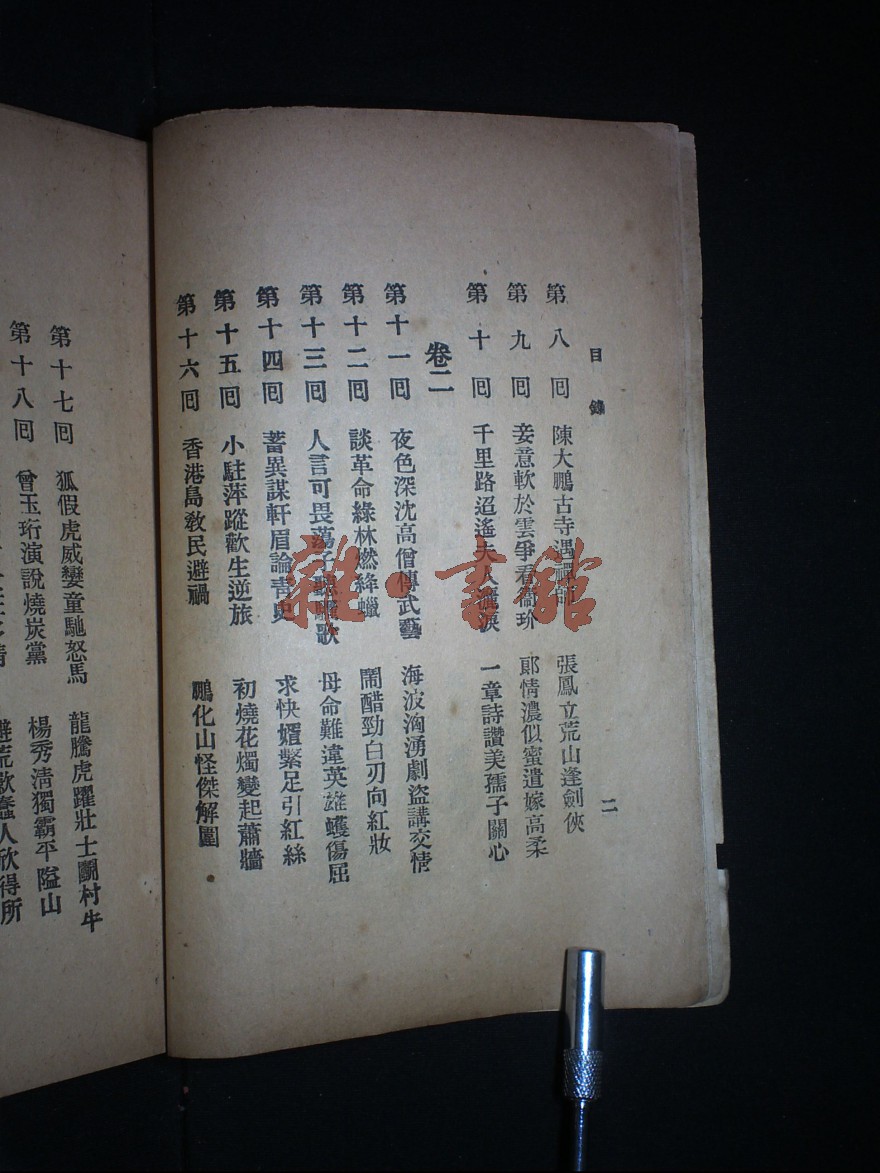 目錄
二
第八回 陳大鵬古寺遇禪師 張鳳立荒山逢劍俠
第九回 妾意軟於雲爭看 珍 郞情濃似蜜遣嫁高柔
第十回 千里路迢遙夫人 淚 一章詩讚美孺子關心
卷二
第十一回 夜色深沈高僧傳武藝 海波洶湧劇盜講交情
第十二回 談革命綠林燃絳蠟 鬧醋勁白刃向紅妝
第十三回 人言可畏蕩子聽驪歌 母命難違英雄蠖傷屈
第十四回 蓄異謀軒眉論靑史 求快婿繫足引紅絲
第十五回 小駐萍蹤歡生逆旅 初燒花燭變起蕭牆
第十六回 香港島敎民避禍 鵬化山怪傑解圍
第十七回 狐假虎威孌童馳怒馬 龍騰虎躍壯士鬭村牛
第十八回 曾玉珩演說燒炭黨 楊秀淸獨霸平隘山
雜·書館